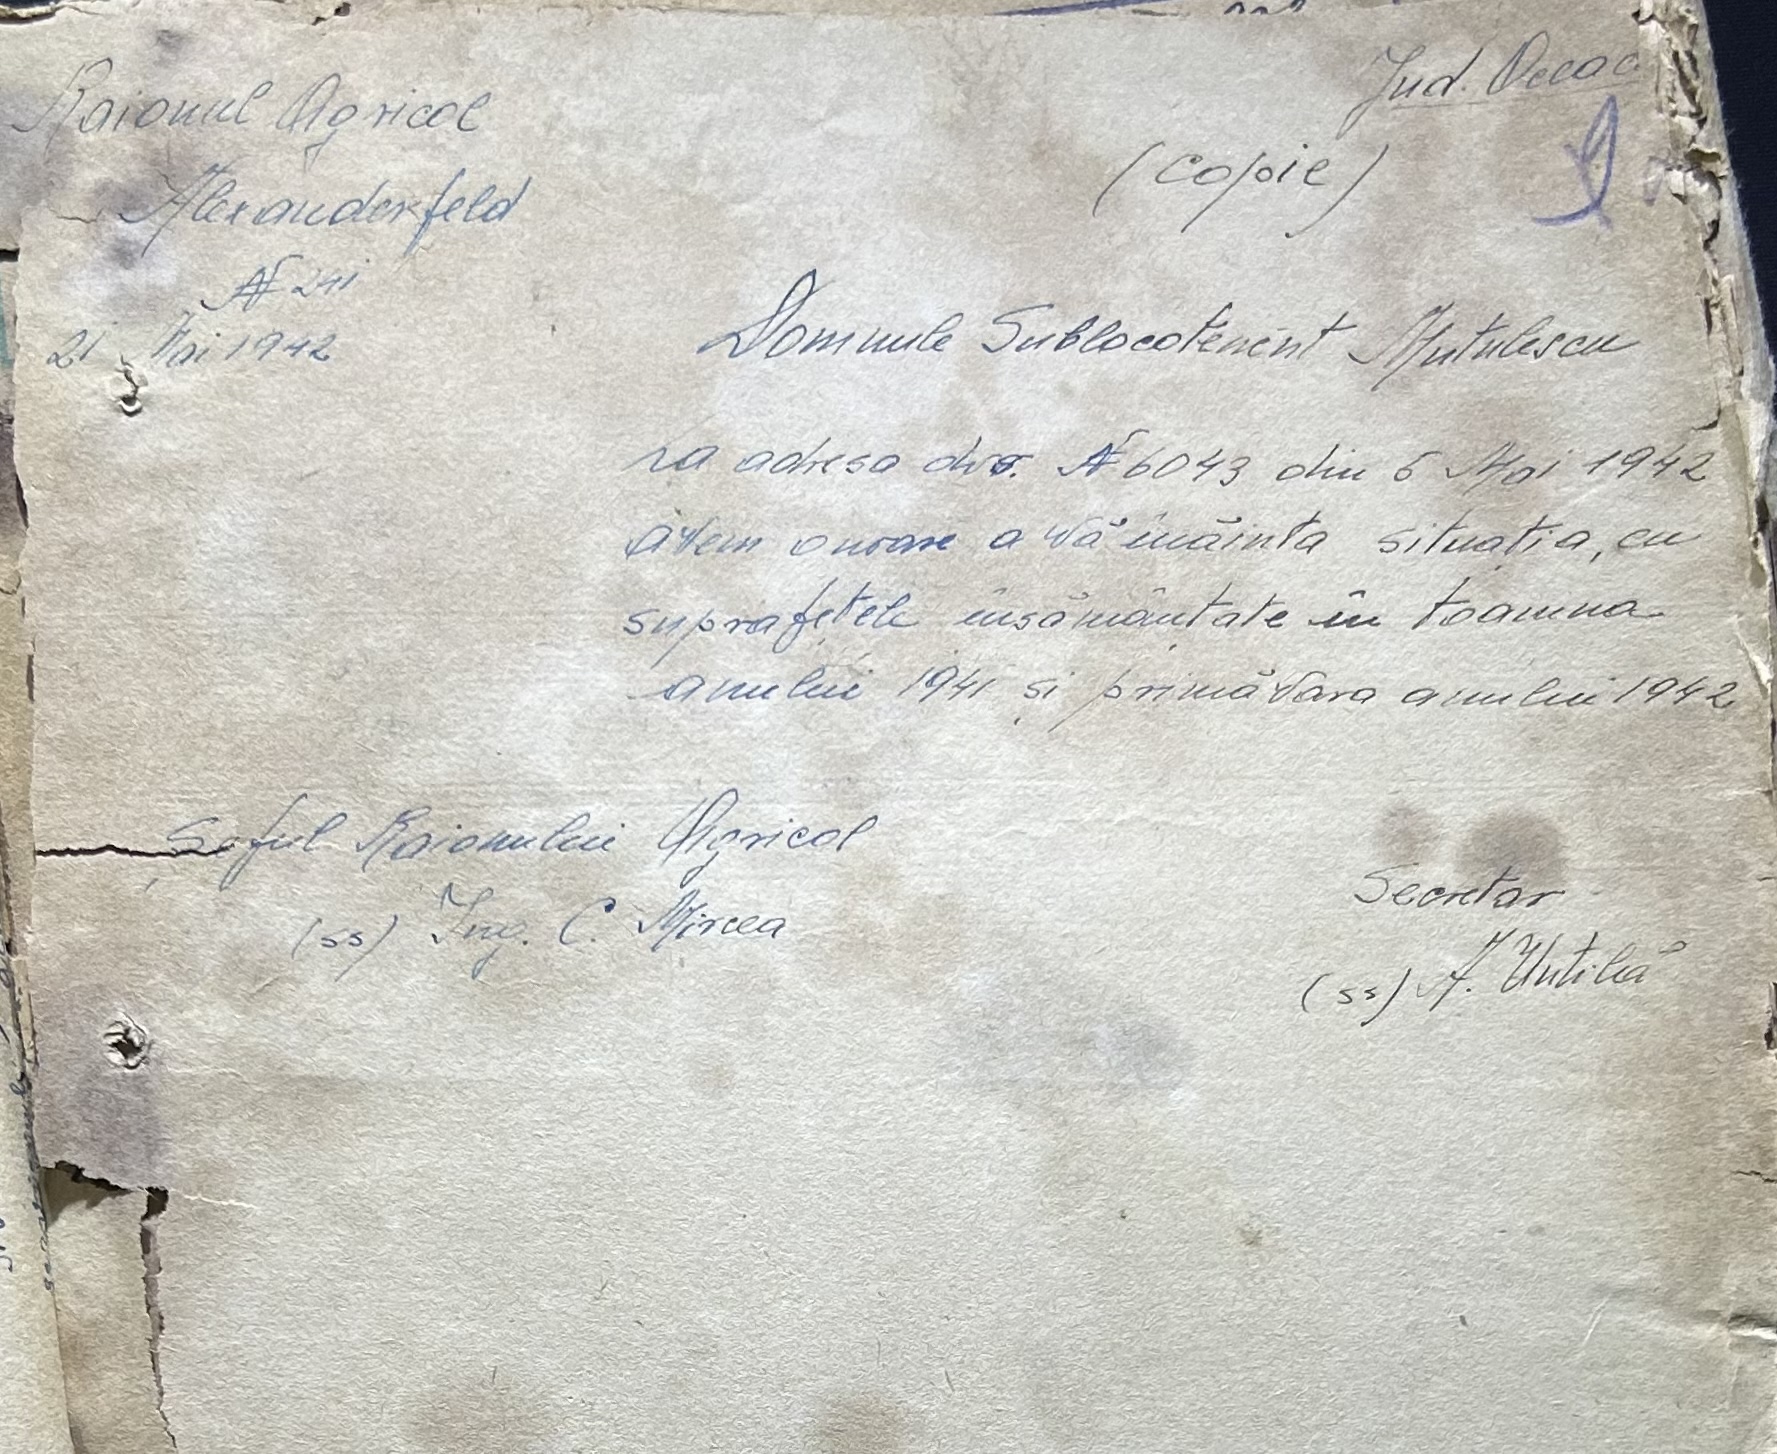 Raionul Agricol
Jud. Oceac
Alexanderfeld
(copie)
№ 241
21 Mai 1942
Domnule Sublocotenent Mutulescu
La adresa dvs. № 6043 din 6 Mai 1942
avem onoare a vă înăinta situația, cu
suprafețele însămânțate în toamna
anului 1941 și primăvara anului 1942
Șeful Raionului Agricol
Secretar
(ss) Ing. C. Mircea
(ss) A. Untilă